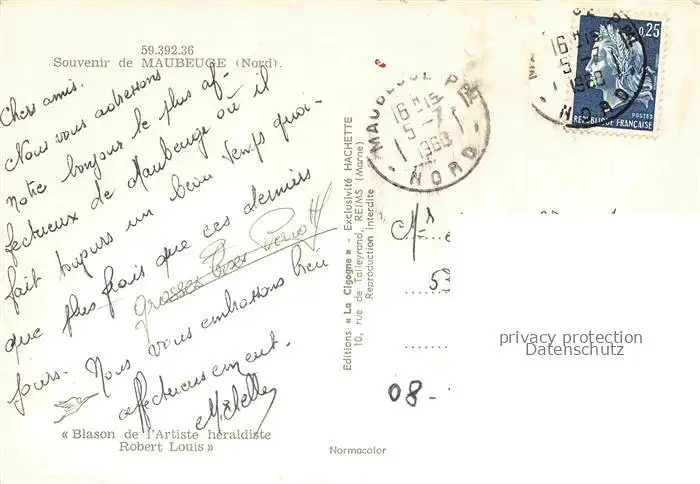 59.392.36
Souvenir de MAUBEUGE (Nord).
Chers amis.
Nous vous adressons
notre bonjour le plus af-
fectueux de Maubeuge où il
fait toujours un beau temps quoi-
que plus frais que ces derniers
jours. Nous vous embrassons bien
affectueusement.
Michelle
grosses bises
« Blason de l'Artiste héraldiste
Robert Louis »
Editions « La Cigogne » - Exclusivité HACHETTE
10, rue de Talleyrand, REIMS (Marne)
Reproduction interdite
Normacolor
MAUBEUGE
16 H 15
5-7
1969
NORD
16 H 15
5-7
1969
NORD
0,25
POSTES
REPUBLIQUE FRANÇAISE
08-
privacy protection
Datenschutz